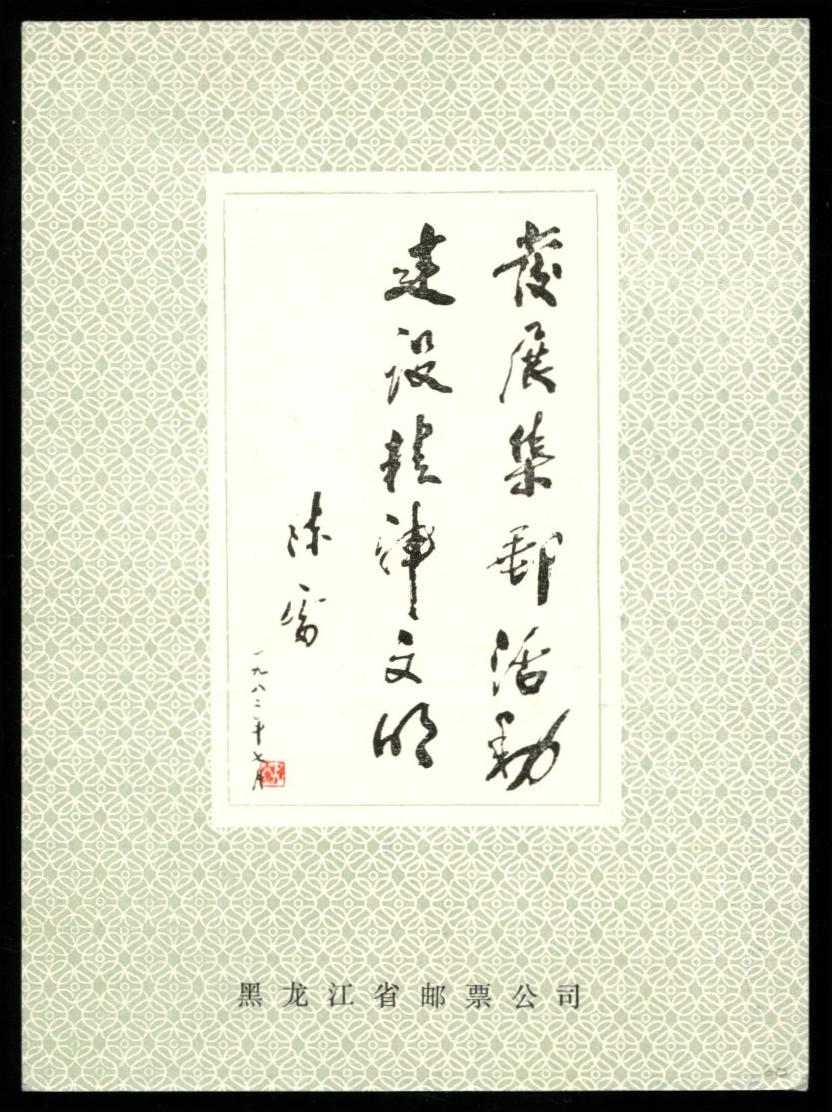 發展集邮活動
建设精神文明
陈雷
一九八二年七月
黑龙江省邮票公司